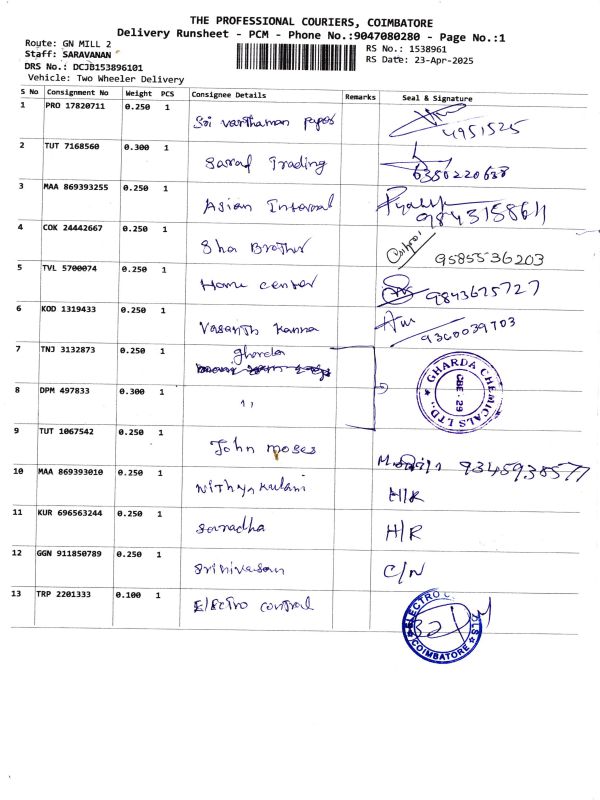 THE PROFESSIONAL COURIERS, COIMBATORE
Delivery Runsheet - PCM - Phone No.:9047080280 - Page No.:1
Route: GN MILL 2
RS No.: 1538961
Staff: SARAVANAN
RS Date: 23-Apr-2025
DRS No.: DCJB153896101
Vehicle: Two Wheeler Delivery
S No Consignment No Weight PCS Consignee Details Remarks Seal & Signature
1 PRO 17820711 0.250 1 Sri Varthaman papers 4951525
2 TUT 7168560 0.300 1 Saraf Trading 6380220638
3 MAA 869393255 0.250 1 Asian 9843158611
4 COK 24442667 0.250 1 Sha Brother 9585536203
5 TVL 5700074 0.250 1 Home center 9843675727
6 KOD 1319433 0.250 1 Vasanth Kanna 9360039703
7 TNJ 3132873 0.250 1 gharda GHARDA CHEMICALS LTD., CBE - 29
8 DPM 497833 0.300 1 ,,
9 TUT 1067542 0.250 1 John moses 9345938577
10 MAA 869393010 0.250 1 Nithya Kulani H/R
11 KUR 696563244 0.250 1 H/R
12 GGN 911850789 0.250 1 Srinivasan C/N
13 TRP 2201333 0.100 1 Electro control ELECTRO COIMBATORE